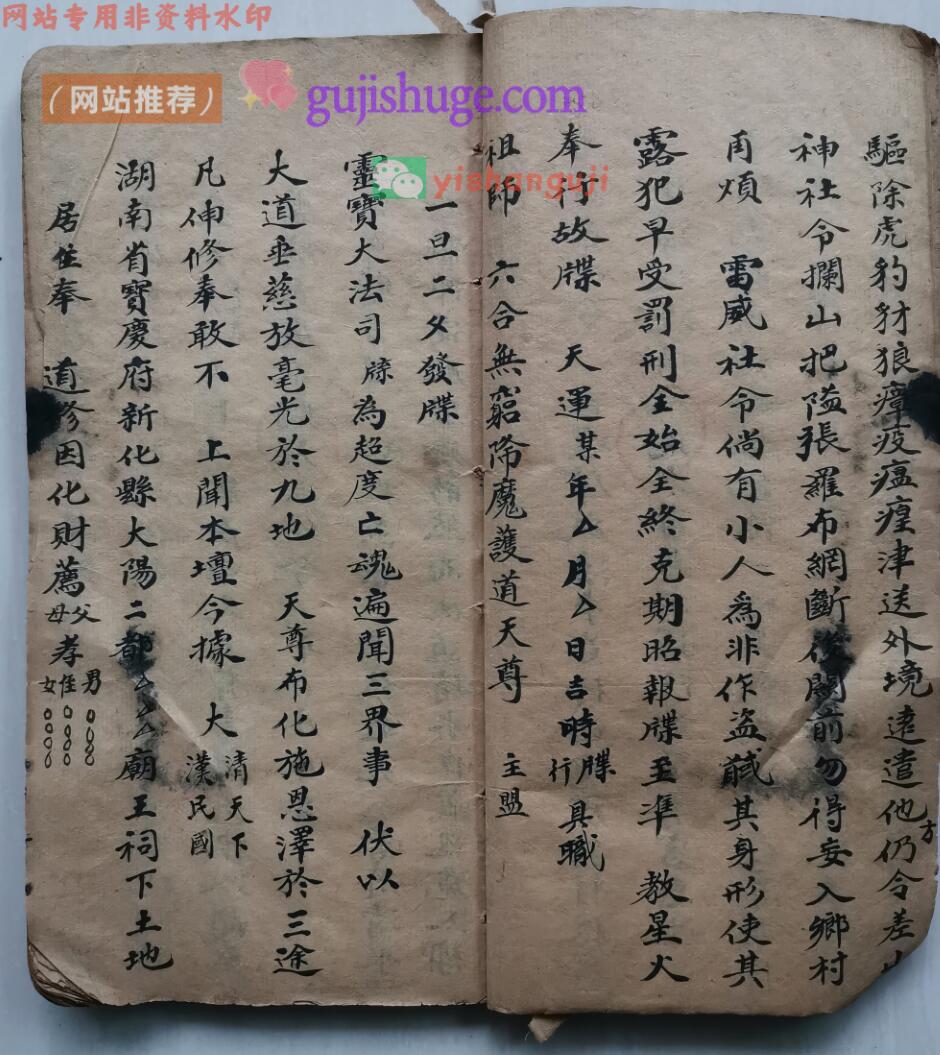 网站专用非资料水印
（网站推荐）
gujishuge.com
yishanguji
驅除虎豹豺狼瘴疫瘟瘴津送外境遠遣他方仍令差山
神社令攔山把隘張羅布網斷後關前勿得妄入鄉村
再煩 雷威社令倘有小人為非作盜賊其身形使其
露犯早受罰刑全始全終克期昭報牒至準 教星火
奉行故牒 天運某年厶月厶日吉時牒行具職
祖師 六合無窮降魔護道天尊 主盟
一旦二夕發牒
靈寶大法司 牒為超度亡魂遍聞三界事 伏以
大道垂慈放毫光於九地 天尊布化施恩澤於三途
凡伸修奉敢不 上聞本壇今據 大清天下漢民國
湖南省寶慶府新化縣大陽二都厶厶廟王祠下土地
居住奉 道修因化財薦父母孝男侄女